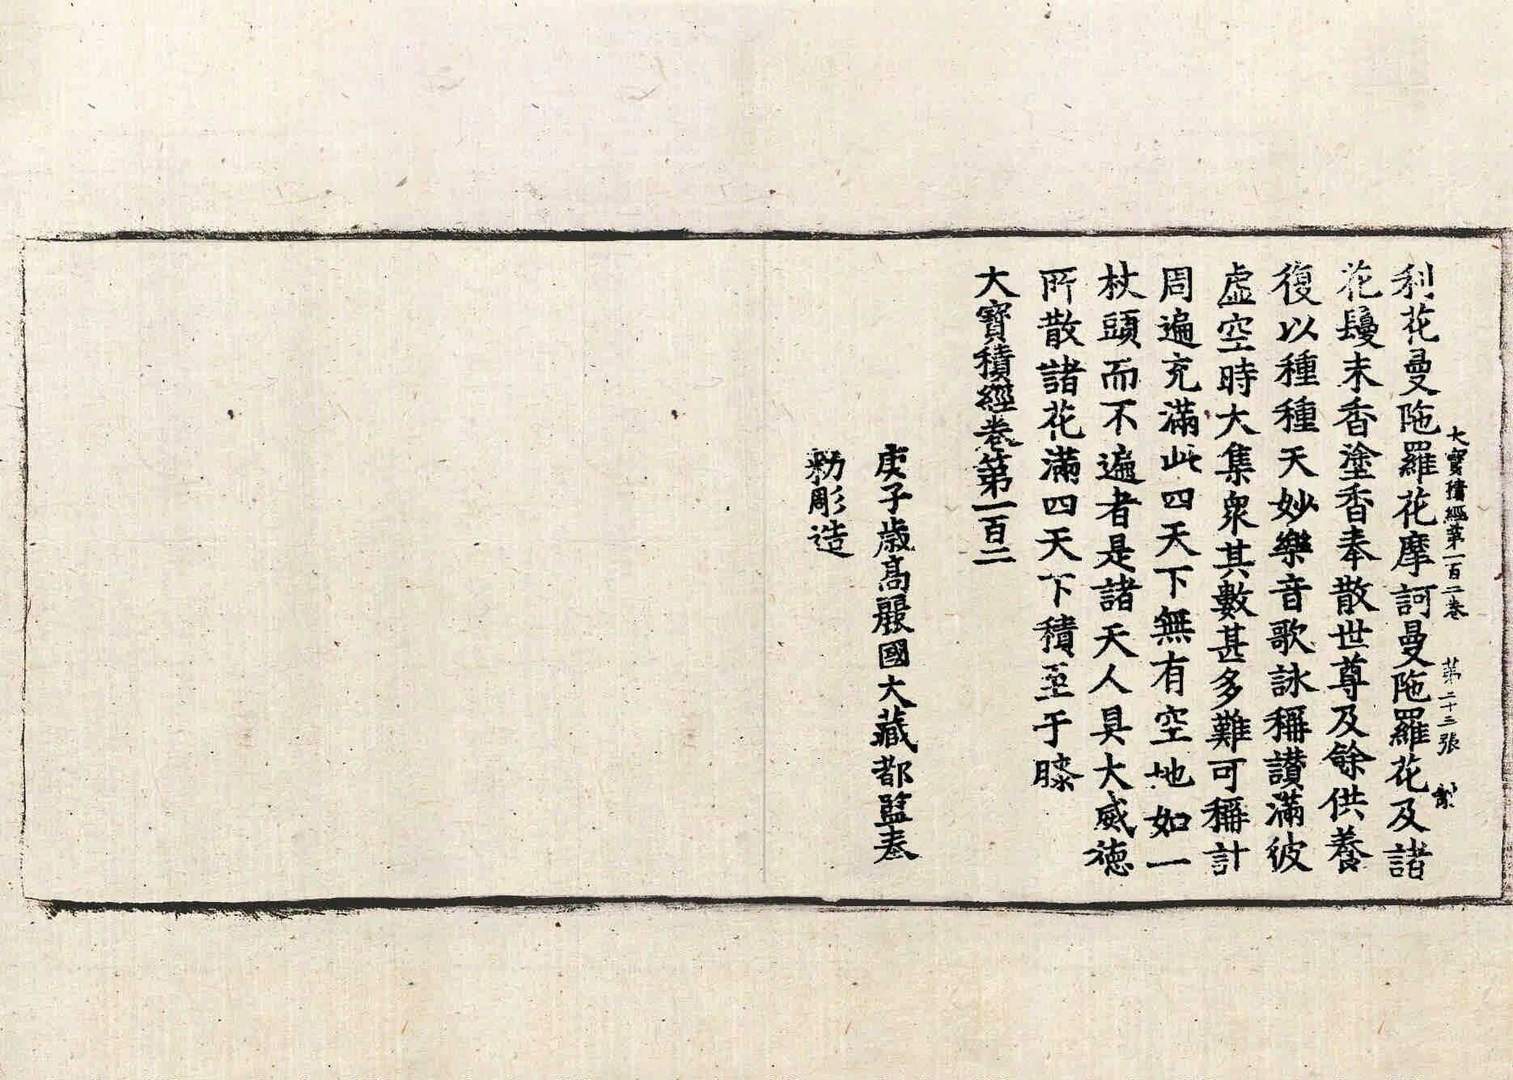 大寶積經第一百二卷 第二十三張
利花曼陁羅花摩訶曼陁羅花及諸
花鬘末香塗香奉散世尊及餘供養
復以種種天妙樂音歌詠稱讃滿彼
虛空時大集衆其數甚多難可稱計
周遍充滿此四天下無有空地如一
杖頭而不遍者是諸天人具大威徳
所散諸花滿四天下積至于膝
大寶積經卷第一百二
庚子歲高麗國大藏都監奉
勅彫造